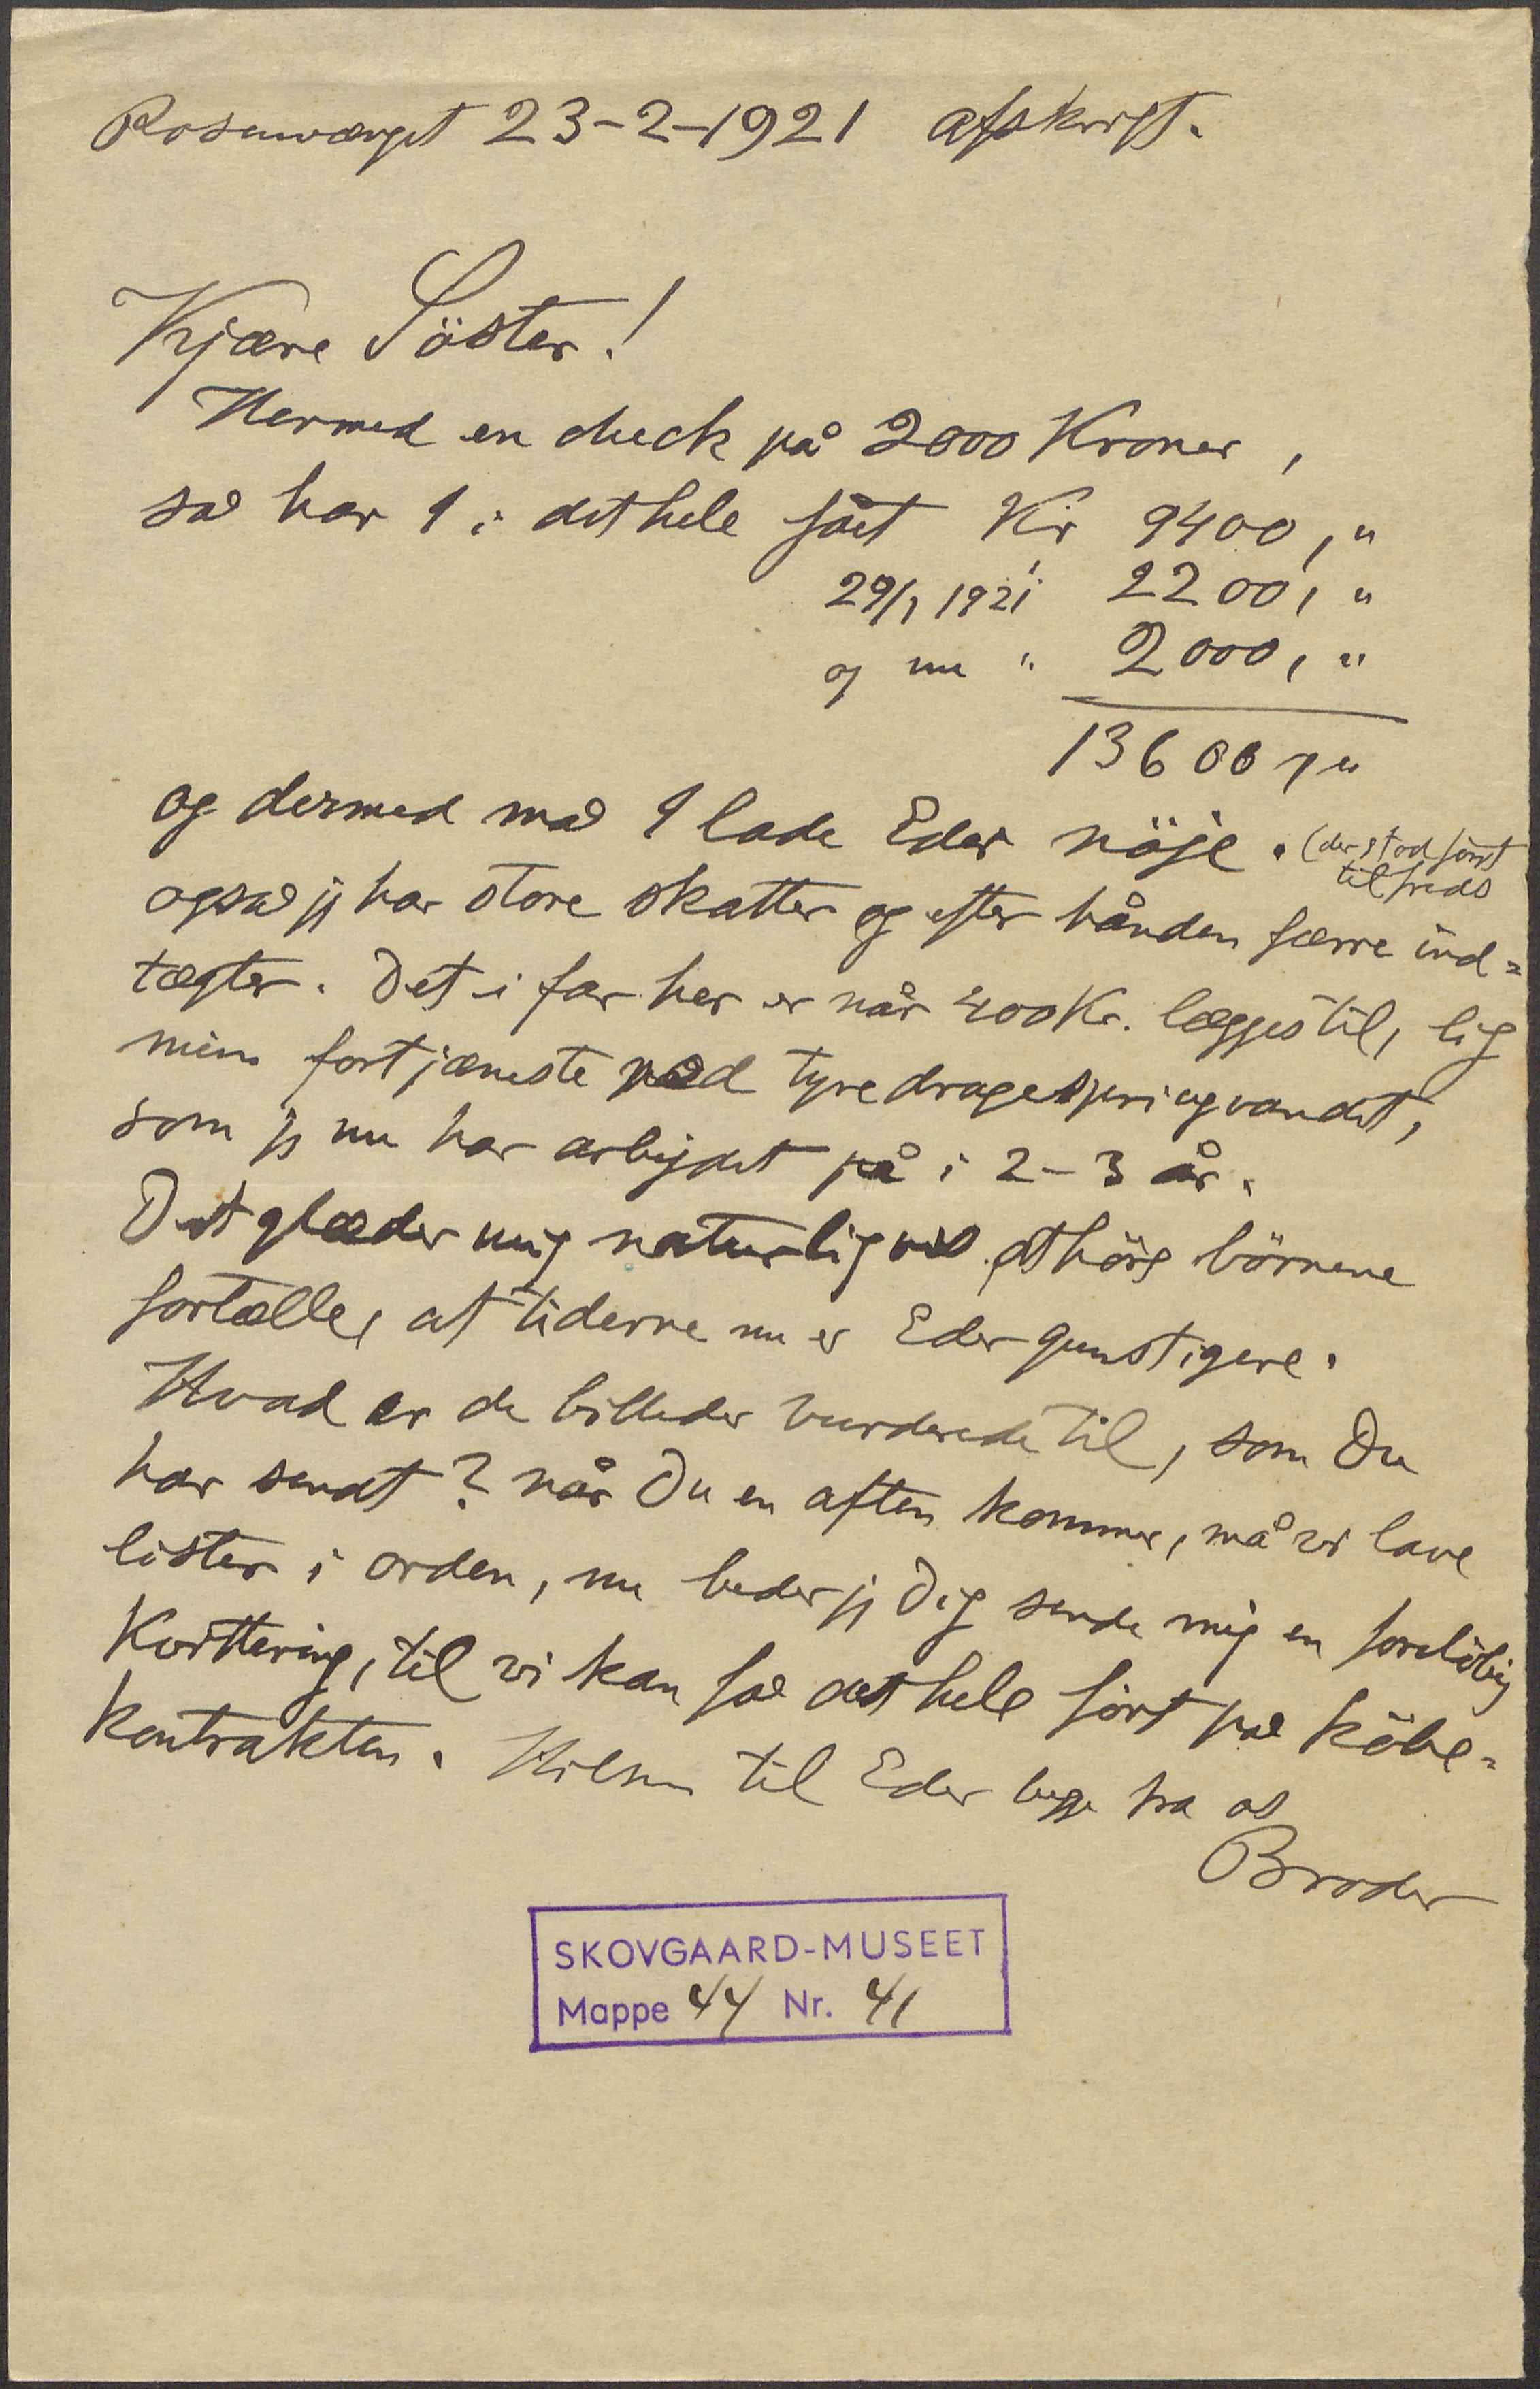 Rosenvænget 23-2-1921 afskrift.
Kjære Söster!
Hermed en check på 2000 Kroner,
så har I i det hele fået Kr 9400,"
29/1 1921 " 2200,"
og nu " 2000,"
13600,"
og dermed må I lade Eder nöje. (der stod först
tilfreds
også jeg har store skatter og efter hånden færre ind=
tægter. Det i får her er når 400 Kr. lægges til, lig
min fortjæneste ved tyredragespringvandet,
som jeg nu har arbejdet på i 2-3 år.
Det glæder mig naturligvis at höre börnene
fortælle, at tiderne nu er Eder gunstigere.
Hvad er de billeder vurderede til, som Du
har sendt? når Du en aften kommer, må vi lave
lister i orden, nu beder jeg Dig sende mig en forelöbig
Kvittering, til vi kan få det hele fört på köbe=
kontrakten. Hilsen til Eder begge fra os
Broder
SKOVGAARD-MUSEET
Mappe 44 Nr. 41